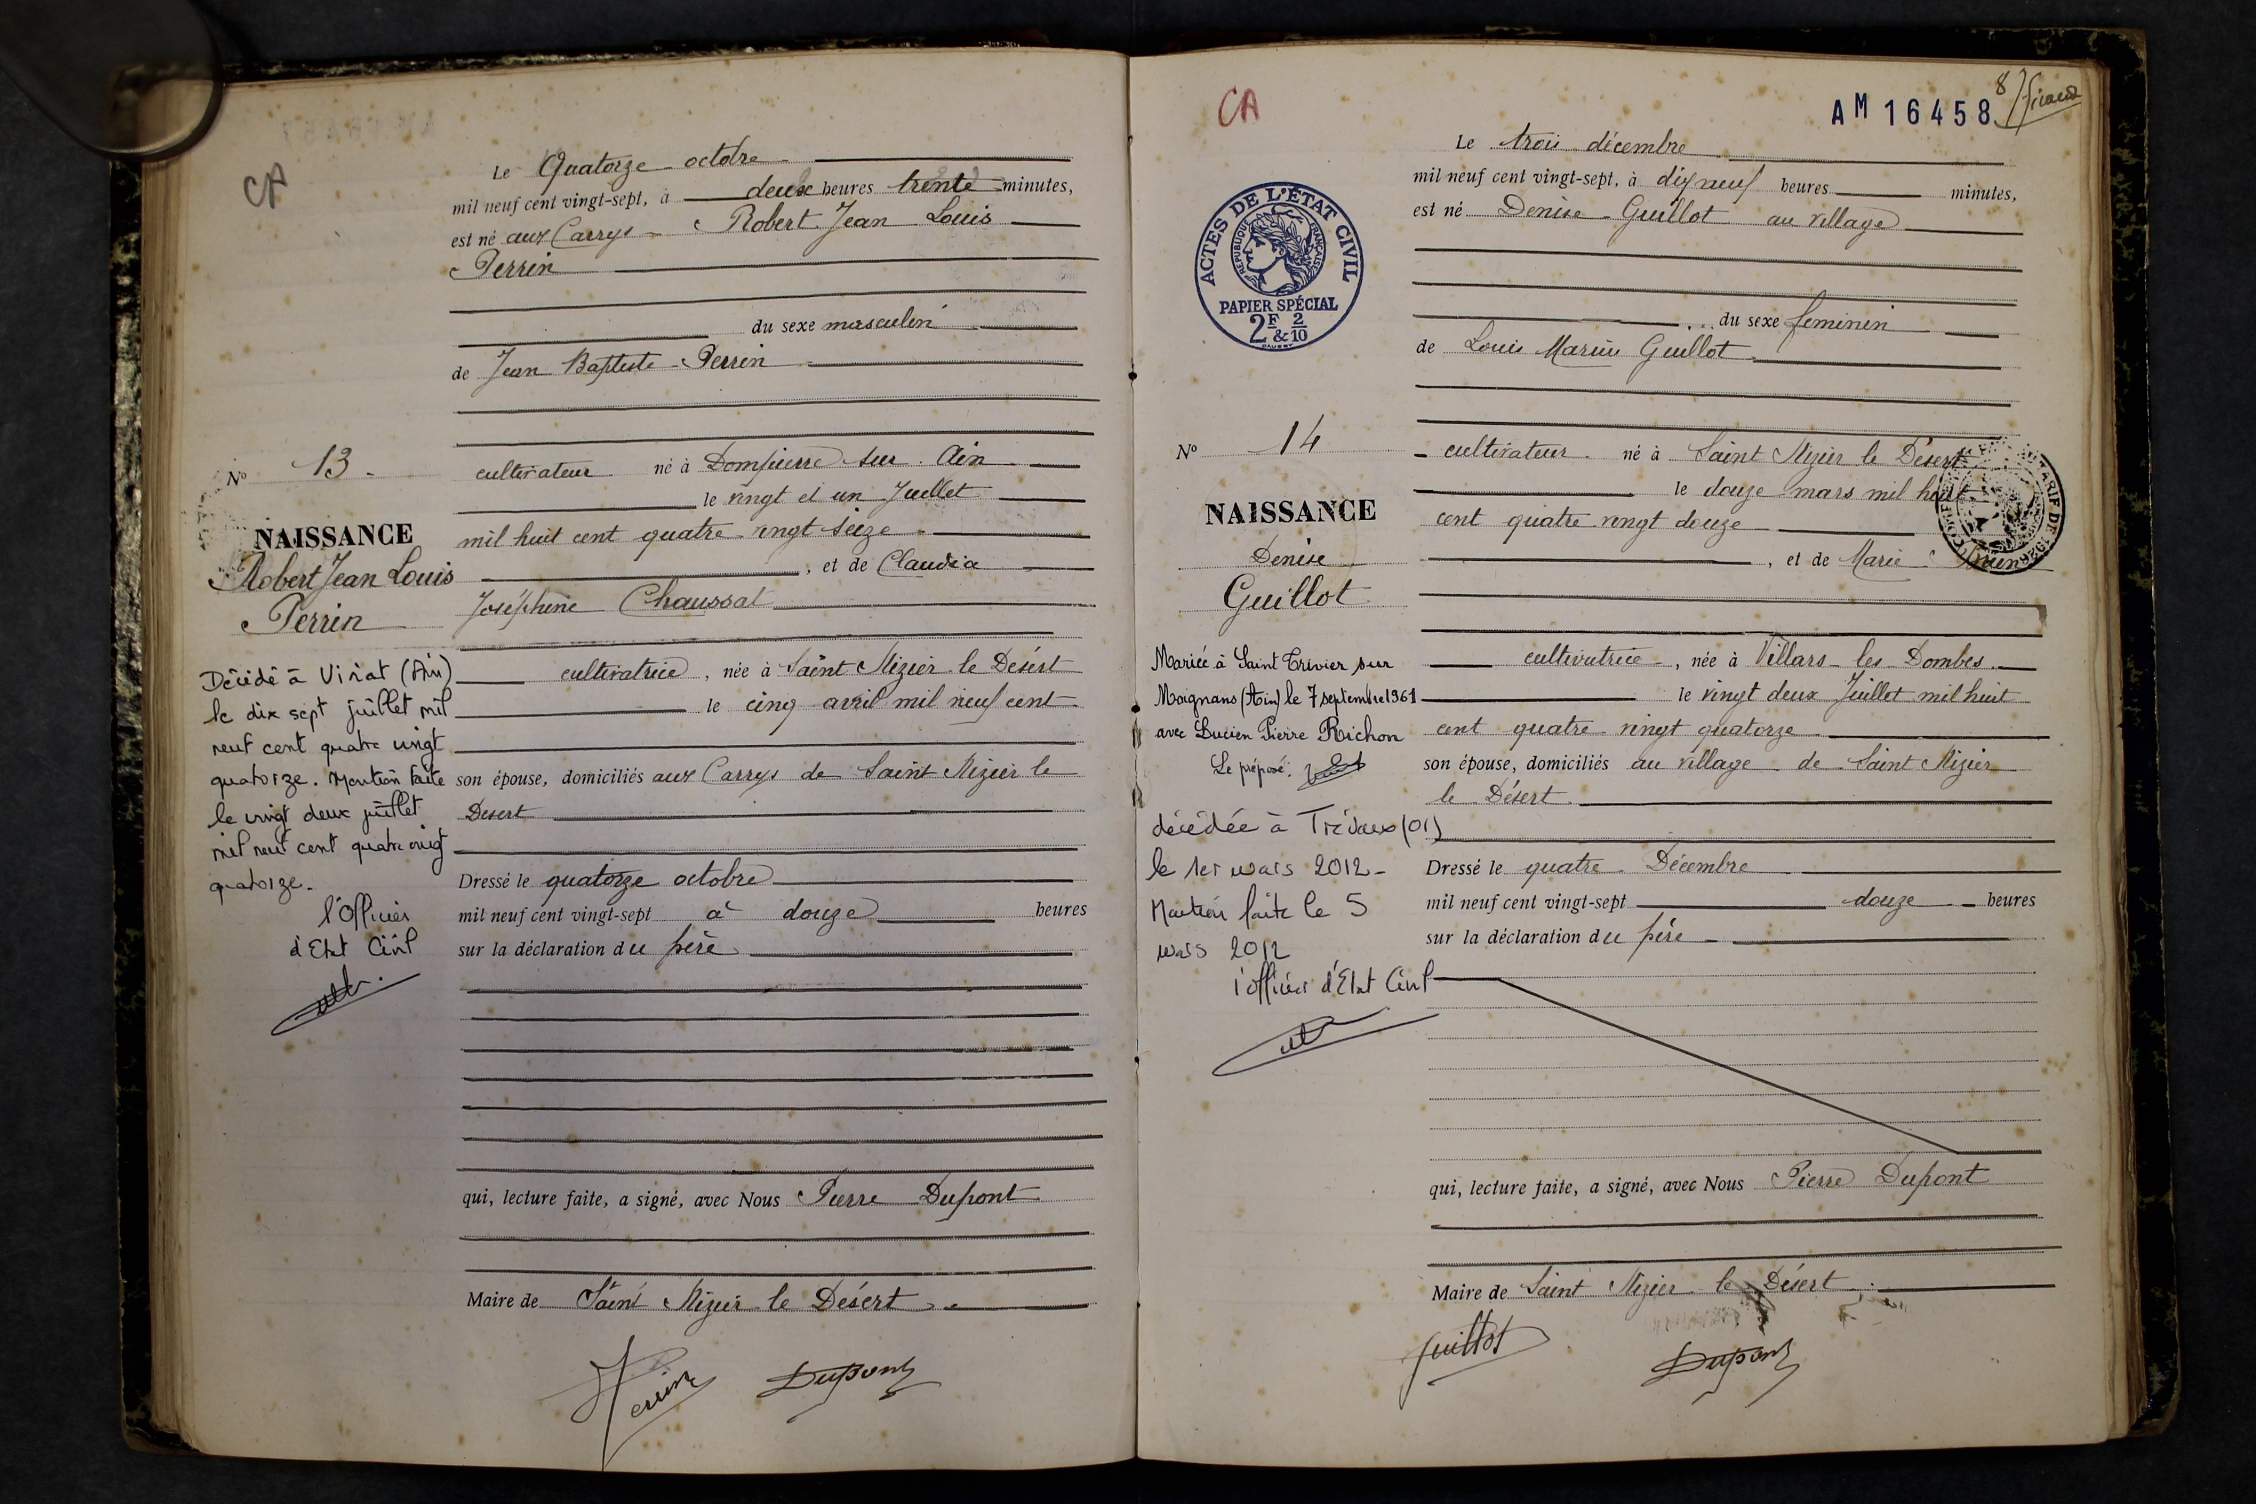 CA
Le Quatorze octobre
mil neuf cent vingt-sept, à deux heures trente minutes,
est né aux Carrys Robert Jean Louis
Perrin
du sexe masculin
de Jean Baptiste Perrin
No 13
cultivateur né à Dompierre sur Ain
le vingt et un Juillet
mil huit cent quatre vingt seize
, et de Claudia
Joséphine Chaussat
cultivatrice, née à Saint Nizier le Désért
le cinq avril mil neuf cent
son épouse, domiciliés aux Carrys de Saint Nizier le
Desert
Dressé le quatorze octobre
mil neuf cent vingt-sept à douze heures
sur la déclaration du père
qui, lecture faite, a signé, avec Nous Pierre Dupont
Maire de Saint Nizier le Désért
Perrin Dupont
NAISSANCE
Robert Jean Louis
Perrin
Décédé à Viriat (Ain)
le dix sept juillet mil
neuf cent quatre vingt
quatorze. Mention faite
le vingt deux juillet
mil neuf cent quatre vingt
quatorze.
l'Officier
d'Etat Civil
CA
AM 16458
8
ACTES DE L'ÉTAT CIVIL
RÉPUBLIQUE FRANÇAISE
PAPIER SPÉCIAL
2F & 2/10
Le trois décembre
mil neuf cent vingt-sept, à dix neuf heures minutes,
est né Denise Guillot au village
du sexe feminin
de Louis Marius Guillot
No 14
cultivateur né à Saint Nizier le Désert
le douze mars mil huit
cent quatre vingt douze
, et de Marie
cultivatrice, née à Villars les Dombes
le vingt deux Juillet mil huit
cent quatre vingt quatorze
son épouse, domiciliés au village de Saint Nizier
le Désert
Dressé le quatre Décembre
mil neuf cent vingt-sept douze heures
sur la déclaration du père
qui, lecture faite, a signé, avec Nous Pierre Dupont
Maire de Saint Nizier le Désert
Guillot Dupont
NAISSANCE
Denise
Guillot
Mariée à Saint Trivier sur
Moignans (Ain) le 7 septembre 1961
avec Lucien Pierre Richon
Le préposé:
décédée à Trévoux (01)
le 1er mars 2012-
Mention faite le 5
mars 2012
l'officier d'Etat Civil